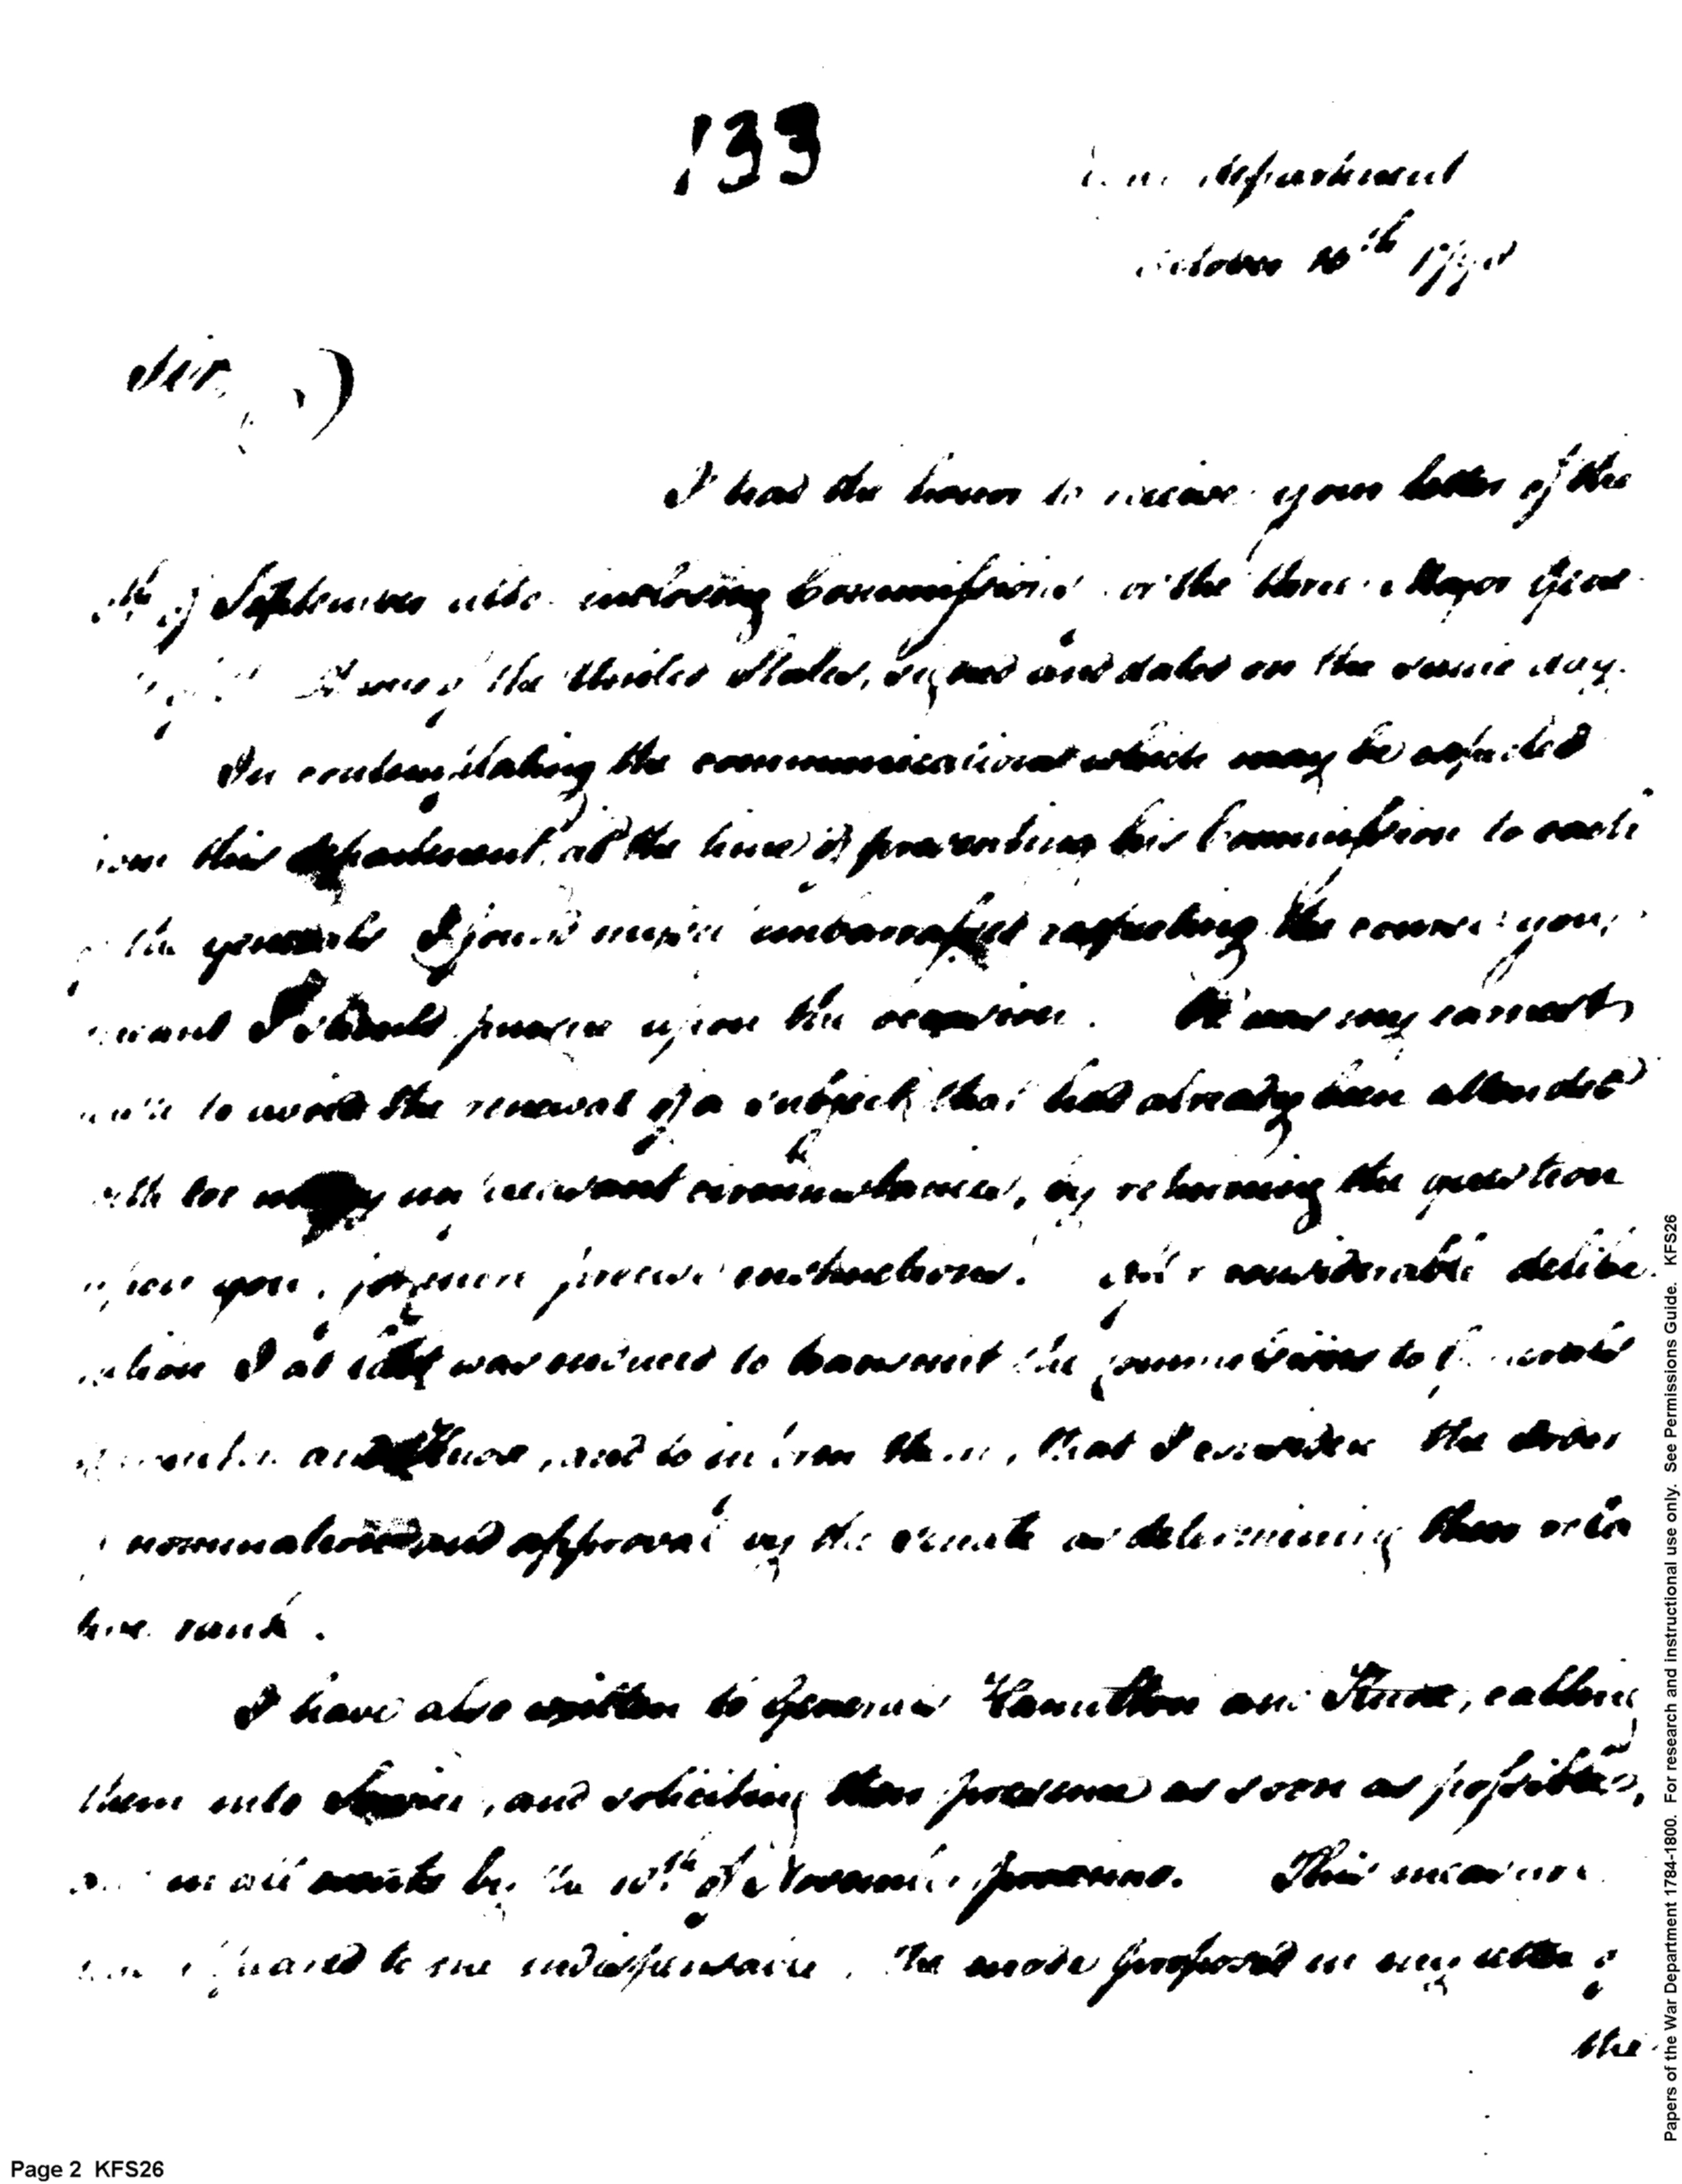 133
department
October th
Sir,
I had the honor to receive your letter of the
of September ulto. inclosing Commissions for the three Major Gene
Army of the United States, signed and dated on the same day.
In contemplating the communications which may be expected
from this department, at the time of presenting his Commission to each
of the generals I found myself embarrassed respecting the course you
meant I should pursue upon the occasion. It was my earnest
to avoid the renewal of a subject, that had already been attended
with too many unpleasant circumstances, by returning the question
upon you, for more precise instructions. After considerable delibe
ration I at last was induced to transmit the commissions to Generals
Hamilton and Knox, and to inform them, that I consider the order
nomination and approval by the senate as determining their rela
tive rank.
I have also written to Generals Hamilton and Knox, calling
them into Service, and soliciting their presence as soon as possible,
in all events by the 10th of November proximo. This measure
appeared to me indispensable. The mode proposed in my letter of
the
Papers of the War Department 1784-1800. For research and instructional use only. See Permissions Guide. KFS26
Page 2 KFS26